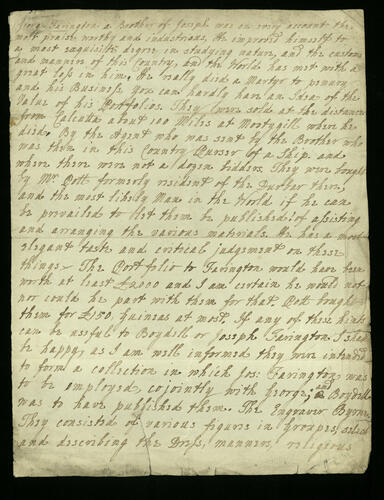 George Farington a Brother of Joseph was on every account the
most praise worthy and industrious. He improv'd himself to
a most exquisite degree in studying nature, and the customs
and manners of this Country, and the World has met with a
great loss in him. He really died a Martyr to penury
and his Business you can hardly have an Idea of the
Value of his Portfolios. They were sold at the distance
from Calcutta about 100 Miles at Mootygill where he
died. By the Agent who was sent by the Brother who
was then in this Country Purser of a Ship. and
where there were not a dozen bidders. They were bought
by Mr. Pott formerly resident of the Durbar there,
and the most likely Man in the World if he can
be prevailed to let them be published: of assisting
and arranging the various materials. He has a most
elegant taste and critical judgment on these
things. The Portfolio to Farington would have been
worth at least £2000 and I am certain he would not
nor could he part with them for that. Pott bought
them for £150, guineas at most. If any of these hints
can be usefull to Boydell or Joseph Farington I shall
be happy, as I am well informed they were intended
to form a collection in which Jos: Farington was
to be employed cojointly with George, and Boydell
was to have published them. The Engraver Byrne.
They consisted of various figures in groupes, select
and describing the Dress, manners, religeous